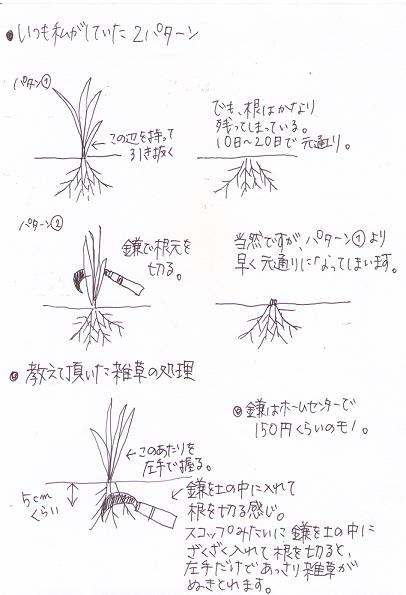 ●いつも私がしていた2パターン
パターン①
←この辺を持って
引き抜く
でも、根はかなり
残ってしまっている。
10日～20日で元通り。
パターン②
鎌で根元を
切る。
当然ですが、パターン①より
早く元通りになってしまいます。
◎教えて頂いた雑草の処理
←このあたりを
左手で握る。
◎鎌はホームセンターで
150円くらいのモノ。
5cm
くらい
鎌を土の中に入れて
根を切る感じ。
スコップみたいに鎌を土の中に
ざくざく入れて根を切ると、
左手だけであっさり雑草が
ぬきとれます。